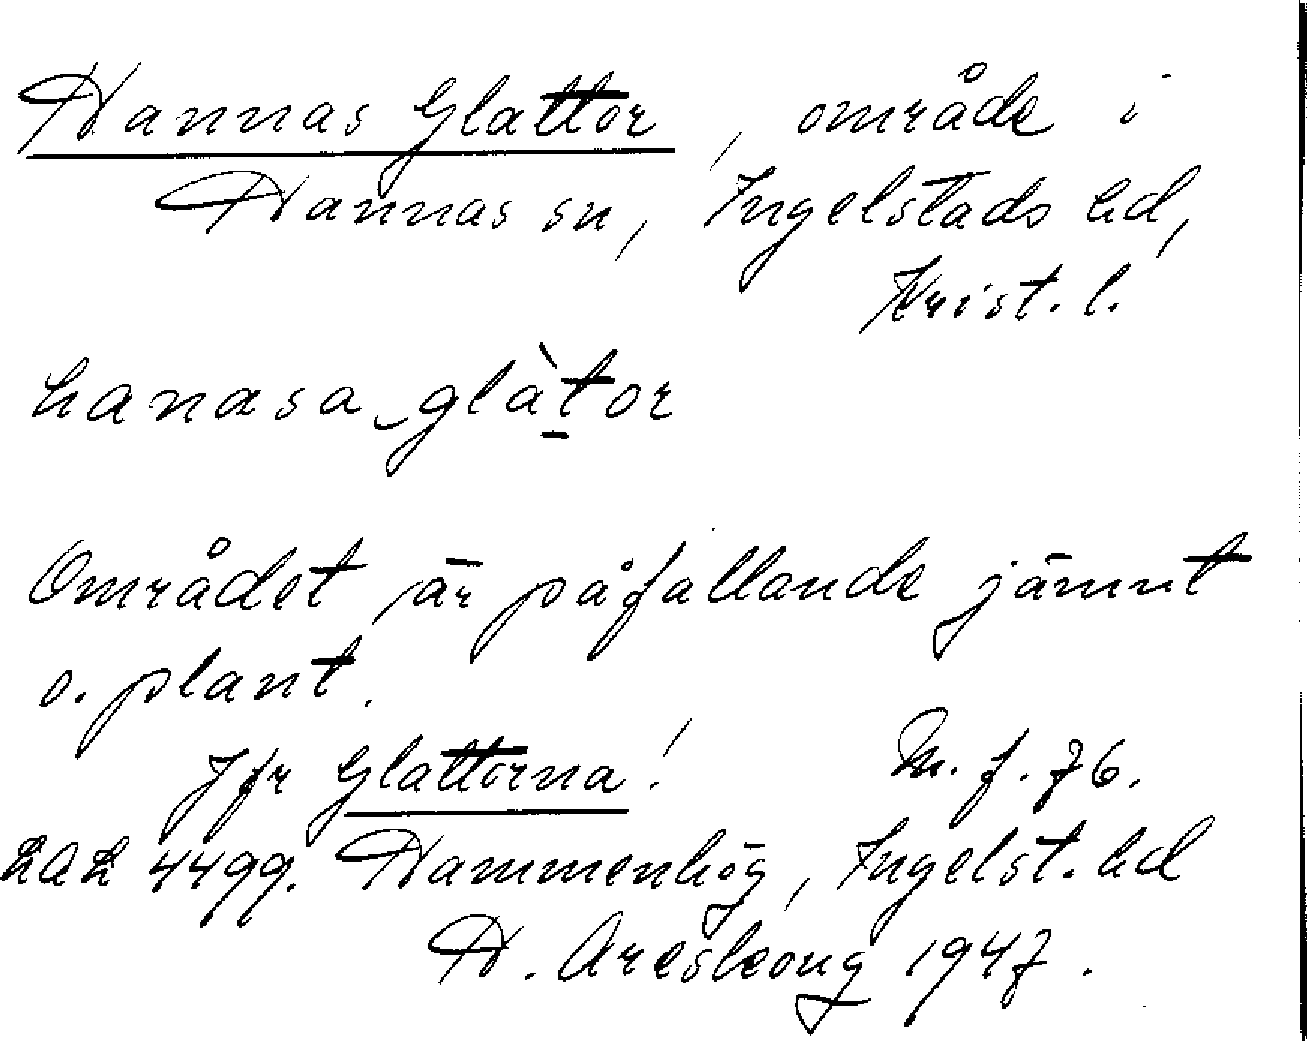 Hannas Glattor, område i
Hannas sn, Ingelstads hd,
Krist. l.
hanasa glàtor
Området är påfallande jämnt
o. plant.
Jfr Glattorna!
M. f. 76.
LAL 4499. Hammenhög, Ingelst. hd
H. Areskoug 1947.